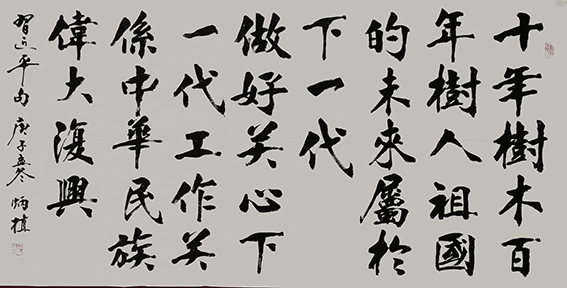 十年樹木百
年樹人祖國
的未來屬於
下一代
做好关心下
一代工作关
係中華民族
偉大復興
習近平句 庚子 冬 炳植